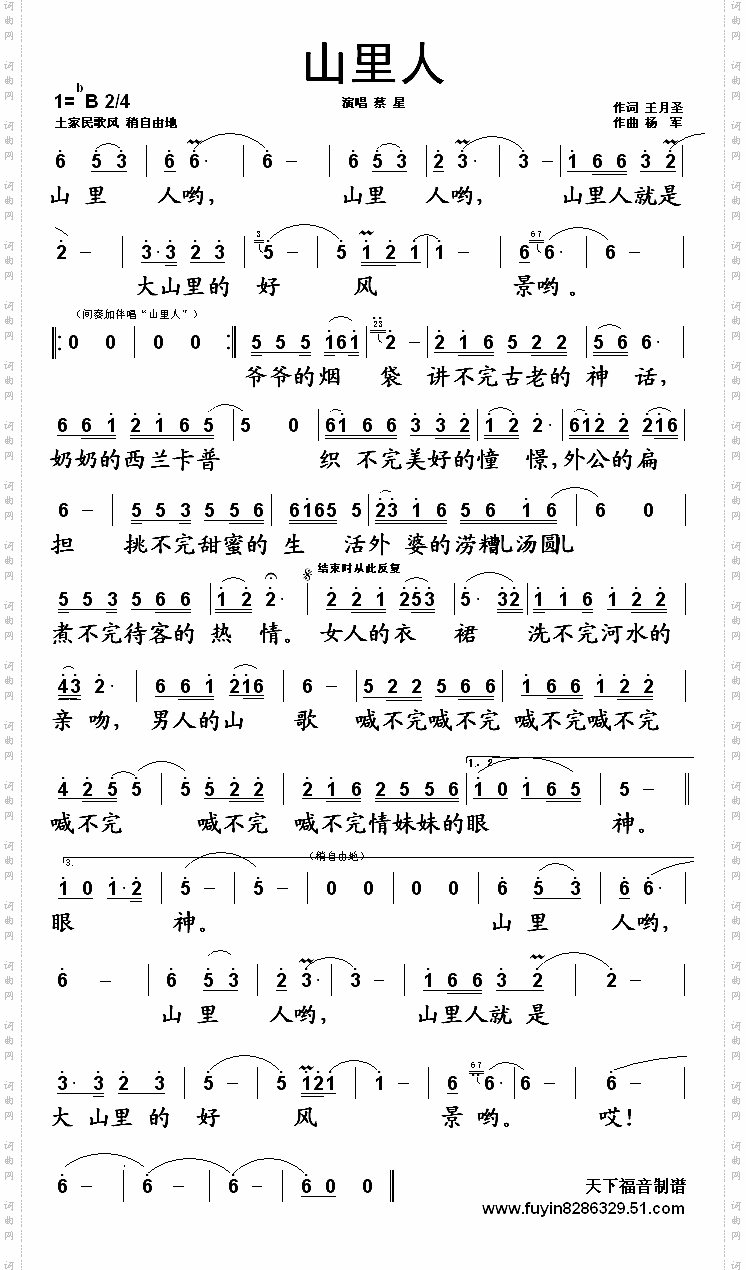 山里人
1=ᵇB 2/4
演唱 蔡 星
作词 王月圣
土家民歌风 稍自由地
作曲 杨 军
6 5 3 | 6 6· | 6 – | 6 5 3 | 2 3· | 3 – | 1 6 6 3 2 |
山 里 人哟, 山里 人哟, 山里人就是
2 – | 3·3 2 3 | 3 5 – | 5 1 2 1 | 1 – | 6 67 6· | 6 – |
大山里的 好 风 景哟。
(间奏加伴唱“山里人”)
‖: 0 0 | 0 0 :‖ 5 5 5 161 | 23 2 – | 2 1 6 5 2 2 | 5 6 6· |
爷爷的烟 袋 讲不完古老的 神 话,
6 6 1 2 1 6 5 | 5 0 | 61 6 6 3 3 2 | 1 2 2· | 612 2 216 |
奶奶的西兰卡普 织 不完美好的憧 憬,外公的扁
6 – | 5 5 3 5 5 6 | 6165 5 | 23 1 6 5 6 1 6 | 6 0 |
担 挑不完甜蜜的 生 活外 婆的涝糟儿汤圆儿
结束时从此反复
5 5 3 5 6 6 | 1 2 2· | 2 2 1 253 | 5· 32 | 1 1 6 1 2 2 |
煮不完待客的 热 情。 女人的衣 裙 洗不完河水的
43 2· | 6 6 1 216 | 6 – | 5 2 2 5 6 6 | 1 6 6 1 2 2 |
亲 吻, 男人的山 歌 喊不完喊不完 喊不完喊不完
1. 2.
4 2 5 5 | 5 5 2 2 | 2 1 6 2 5 5 6 | 1 0 1 6 5 | 5 – ‖
喊不完 喊不完 喊不完情妹妹的眼 神。
3. (稍自由地)
1 0 1·2 | 5 – | 5 – | 0 0 | 0 0 | 6 5 3 | 6 6· |
眼 神。 山 里 人哟,
6 – | 6 5 3 | 2 3· | 3 – | 1 6 6 3 2 | 2 – |
山 里 人哟, 山里人就 是
3· 3 2 3 | 5 – | 5 121 | 1 – | 6 67 6· | 6 – |
大 山里 的 好 风 景 哟。 哎!
6 – | 6 – | 6 – | 6 0 0 ‖
天下福音制谱
www.fuyin8286329.51.com
词曲网